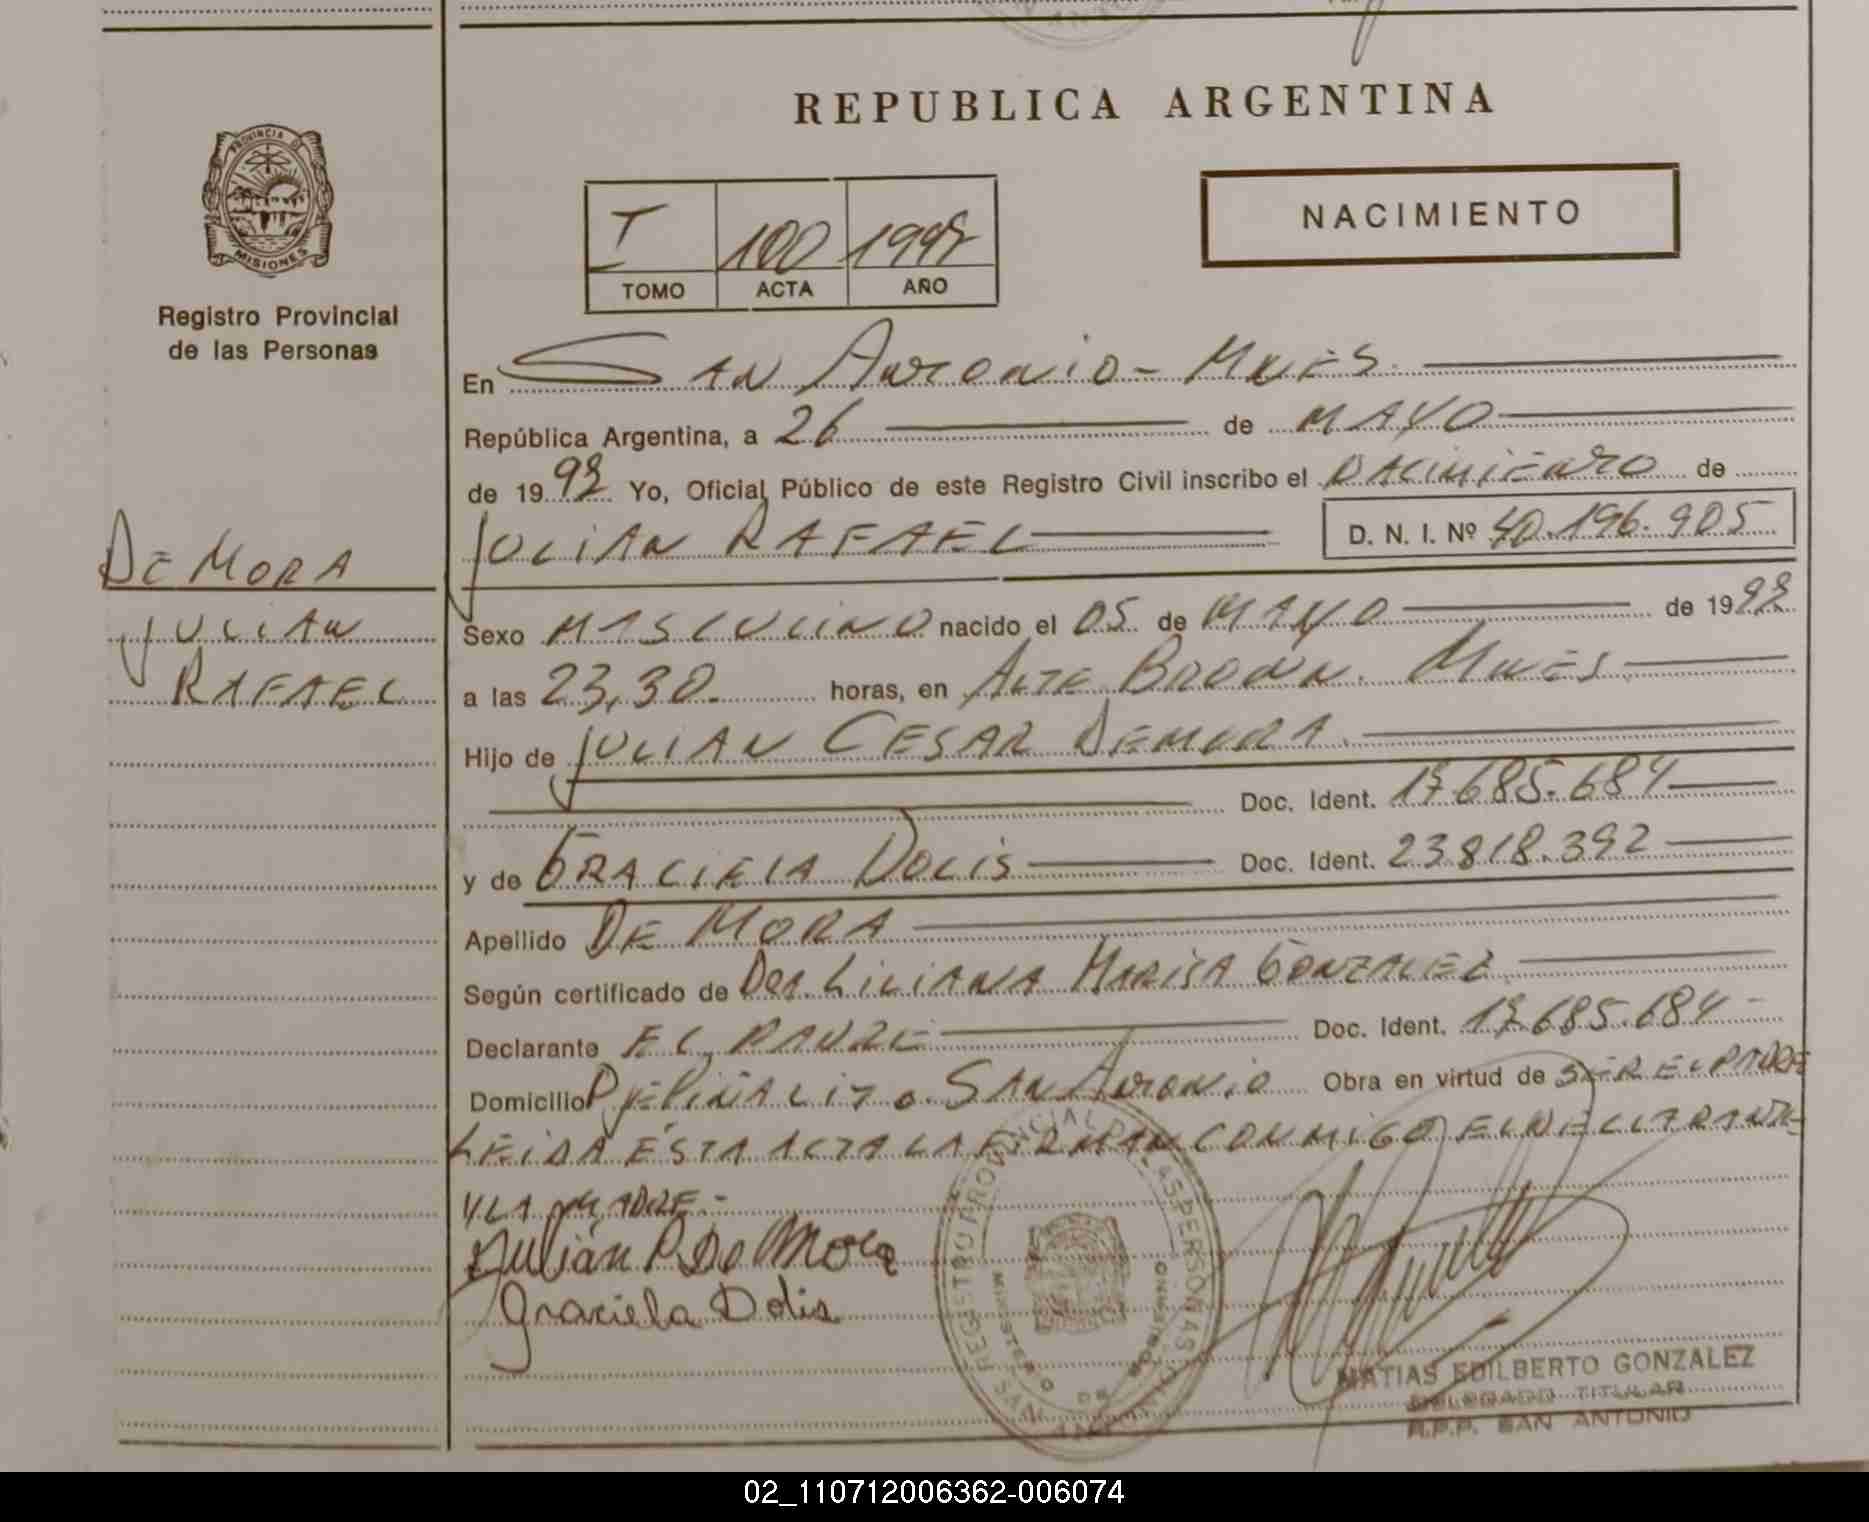 REPUBLICA ARGENTINA
PROVINCIA DE
MISIONES
Registro Provincial
de las Personas
NACIMIENTO
I 100 1998
TOMO ACTA AÑO
En SAN ANTONIO - MNES.
República Argentina, a 26 de MAYO
de 1998 Yo, Oficial Público de este Registro Civil inscribo el NACIMIENTO de
JULIAN RAFAEL D. N. I. Nº 40.196.905
DE MORA
JULIAN
RAFAEL
Sexo MASCULINO nacido el 05 de MAYO de 1998
a las 23,30. horas, en ALTE BROWN. MNES.
Hijo de JULIAN CESAR DEMORA.
Doc. Ident. 17.685.684
y de GRACIELA DOLIS Doc. Ident. 23.818.392
Apellido DE MORA
Según certificado de DRA. LILIANA MARISA GONZALEZ.
Declarante EL PADRE Doc. Ident. 17.685.684
Domicilio PIÑALITO. SAN ANTONIO Obra en virtud de SER EL PADRE
LEIDA ESTA ACTA LA FIRMAN CONMIGO EL DECLARANTE
Y LA MADRE -
Julián De Mora
Graciela Dolis
REGISTRO PROVINCIAL DE LAS PERSONAS
MINISTERIO DE GOBIERNO
MATIAS EDILBERTO GONZALEZ
DELEGADO TITULAR
R.P.P. SAN ANTONIO
02_110712006362-006074